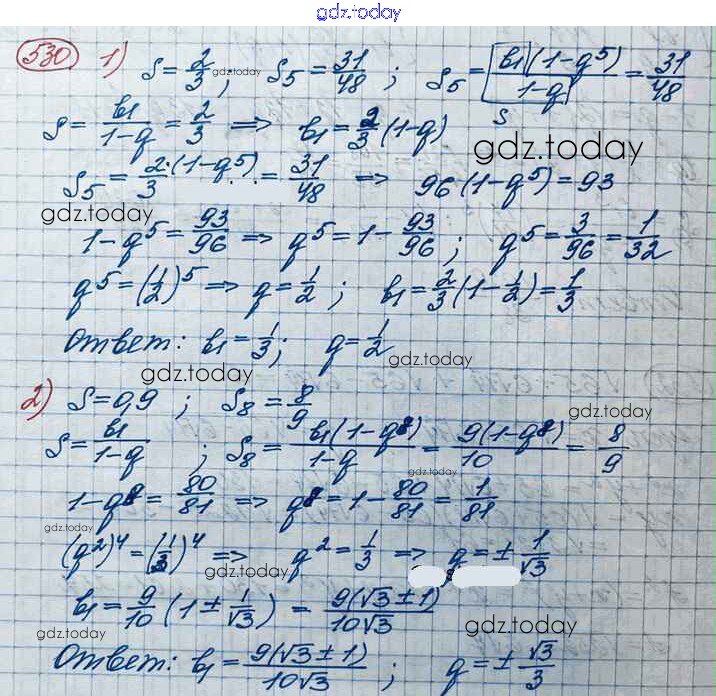 gdz.today
530 1) S = 2/3; S5 = 31/48; S5 = b1(1-q^5)/(1-q) = 31/48
gdz.today
S
S = b1/(1-q) = 2/3 => b1 = 2/3 (1-q)
gdz.today
S5 = 2·(1-q^5)/3 = 31/48 => 96(1-q^5) = 93
gdz.today
1-q^5 = 93/96 => q^5 = 1 - 93/96; q^5 = 3/96 = 1/32
q^5 = (1/2)^5 => q = 1/2; b1 = 2/3 (1 - 1/2) = 1/3
Ответ: b1 = 1/3; q = 1/2
gdz.today
gdz.today
2) S = 0,9; S8 = 8/9
gdz.today
S = b1/(1-q); S8 = b1(1-q^8)/(1-q) = 9(1-q^8)/10 = 8/9
gdz.today
1-q^8 = 80/81 => q^8 = 1 - 80/81 = 1/81
gdz.today
(q^2)^4 = (1/3)^4 => q^2 = 1/3 => q = ± 1/√3
gdz.today
gdz.today
b1 = 9/10 (1 ± 1/√3) = 9(√3 ± 1)/10√3
gdz.today
gdz.today
Ответ: b1 = 9(√3 ± 1)/10√3; q = ± √3/3